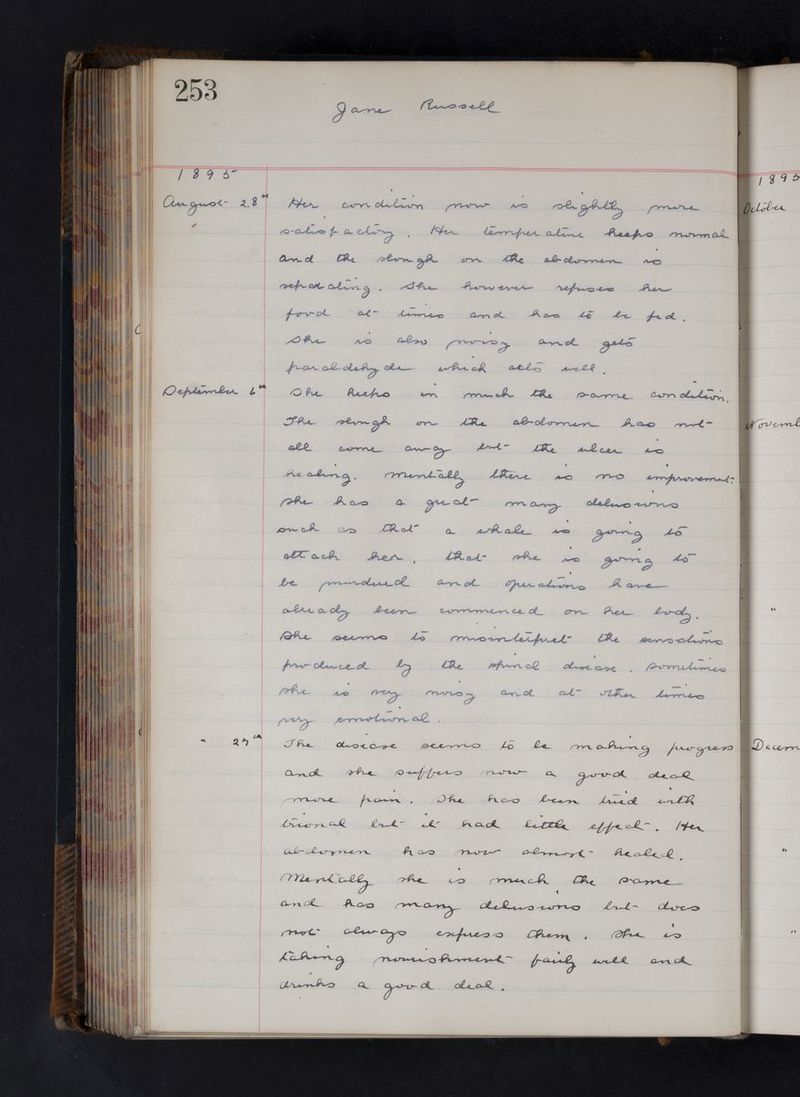 253
Jane Russell
1895
August 28th Her condition now is slightly more
satisfactory. Her temperature keeps normal
and the slough on the abdomen is
separating. She however refuses her
food at times and has to be fed.
She is also noisy and gets
paraldehyde which acts well.
September 6th She keeps in much the same condition.
The slough on the abdomen has not
all come away but the ulcer is
healing. Mentally there is no improvement;
she has a great many delusions
such as that a whale is going to
attach her, that she is going to
be murdered and operations have
already been commenced on her body.
She seems to misinterpret the sensations
produced by the spinal disease. Sometimes
she is very noisy and at other times
very emotional.
" 27th The disease seems to be making progress
and she suffers now a good deal
more pain. She has been tried with
trional but it had little effect. Her
abdomen has now almost healed.
Mentally she is much the same
and has many delusions but does
not always express them. She is
taking nourishment fairly well and
drinks a good deal.
1895
October
Novemb
"
Decem
"
"